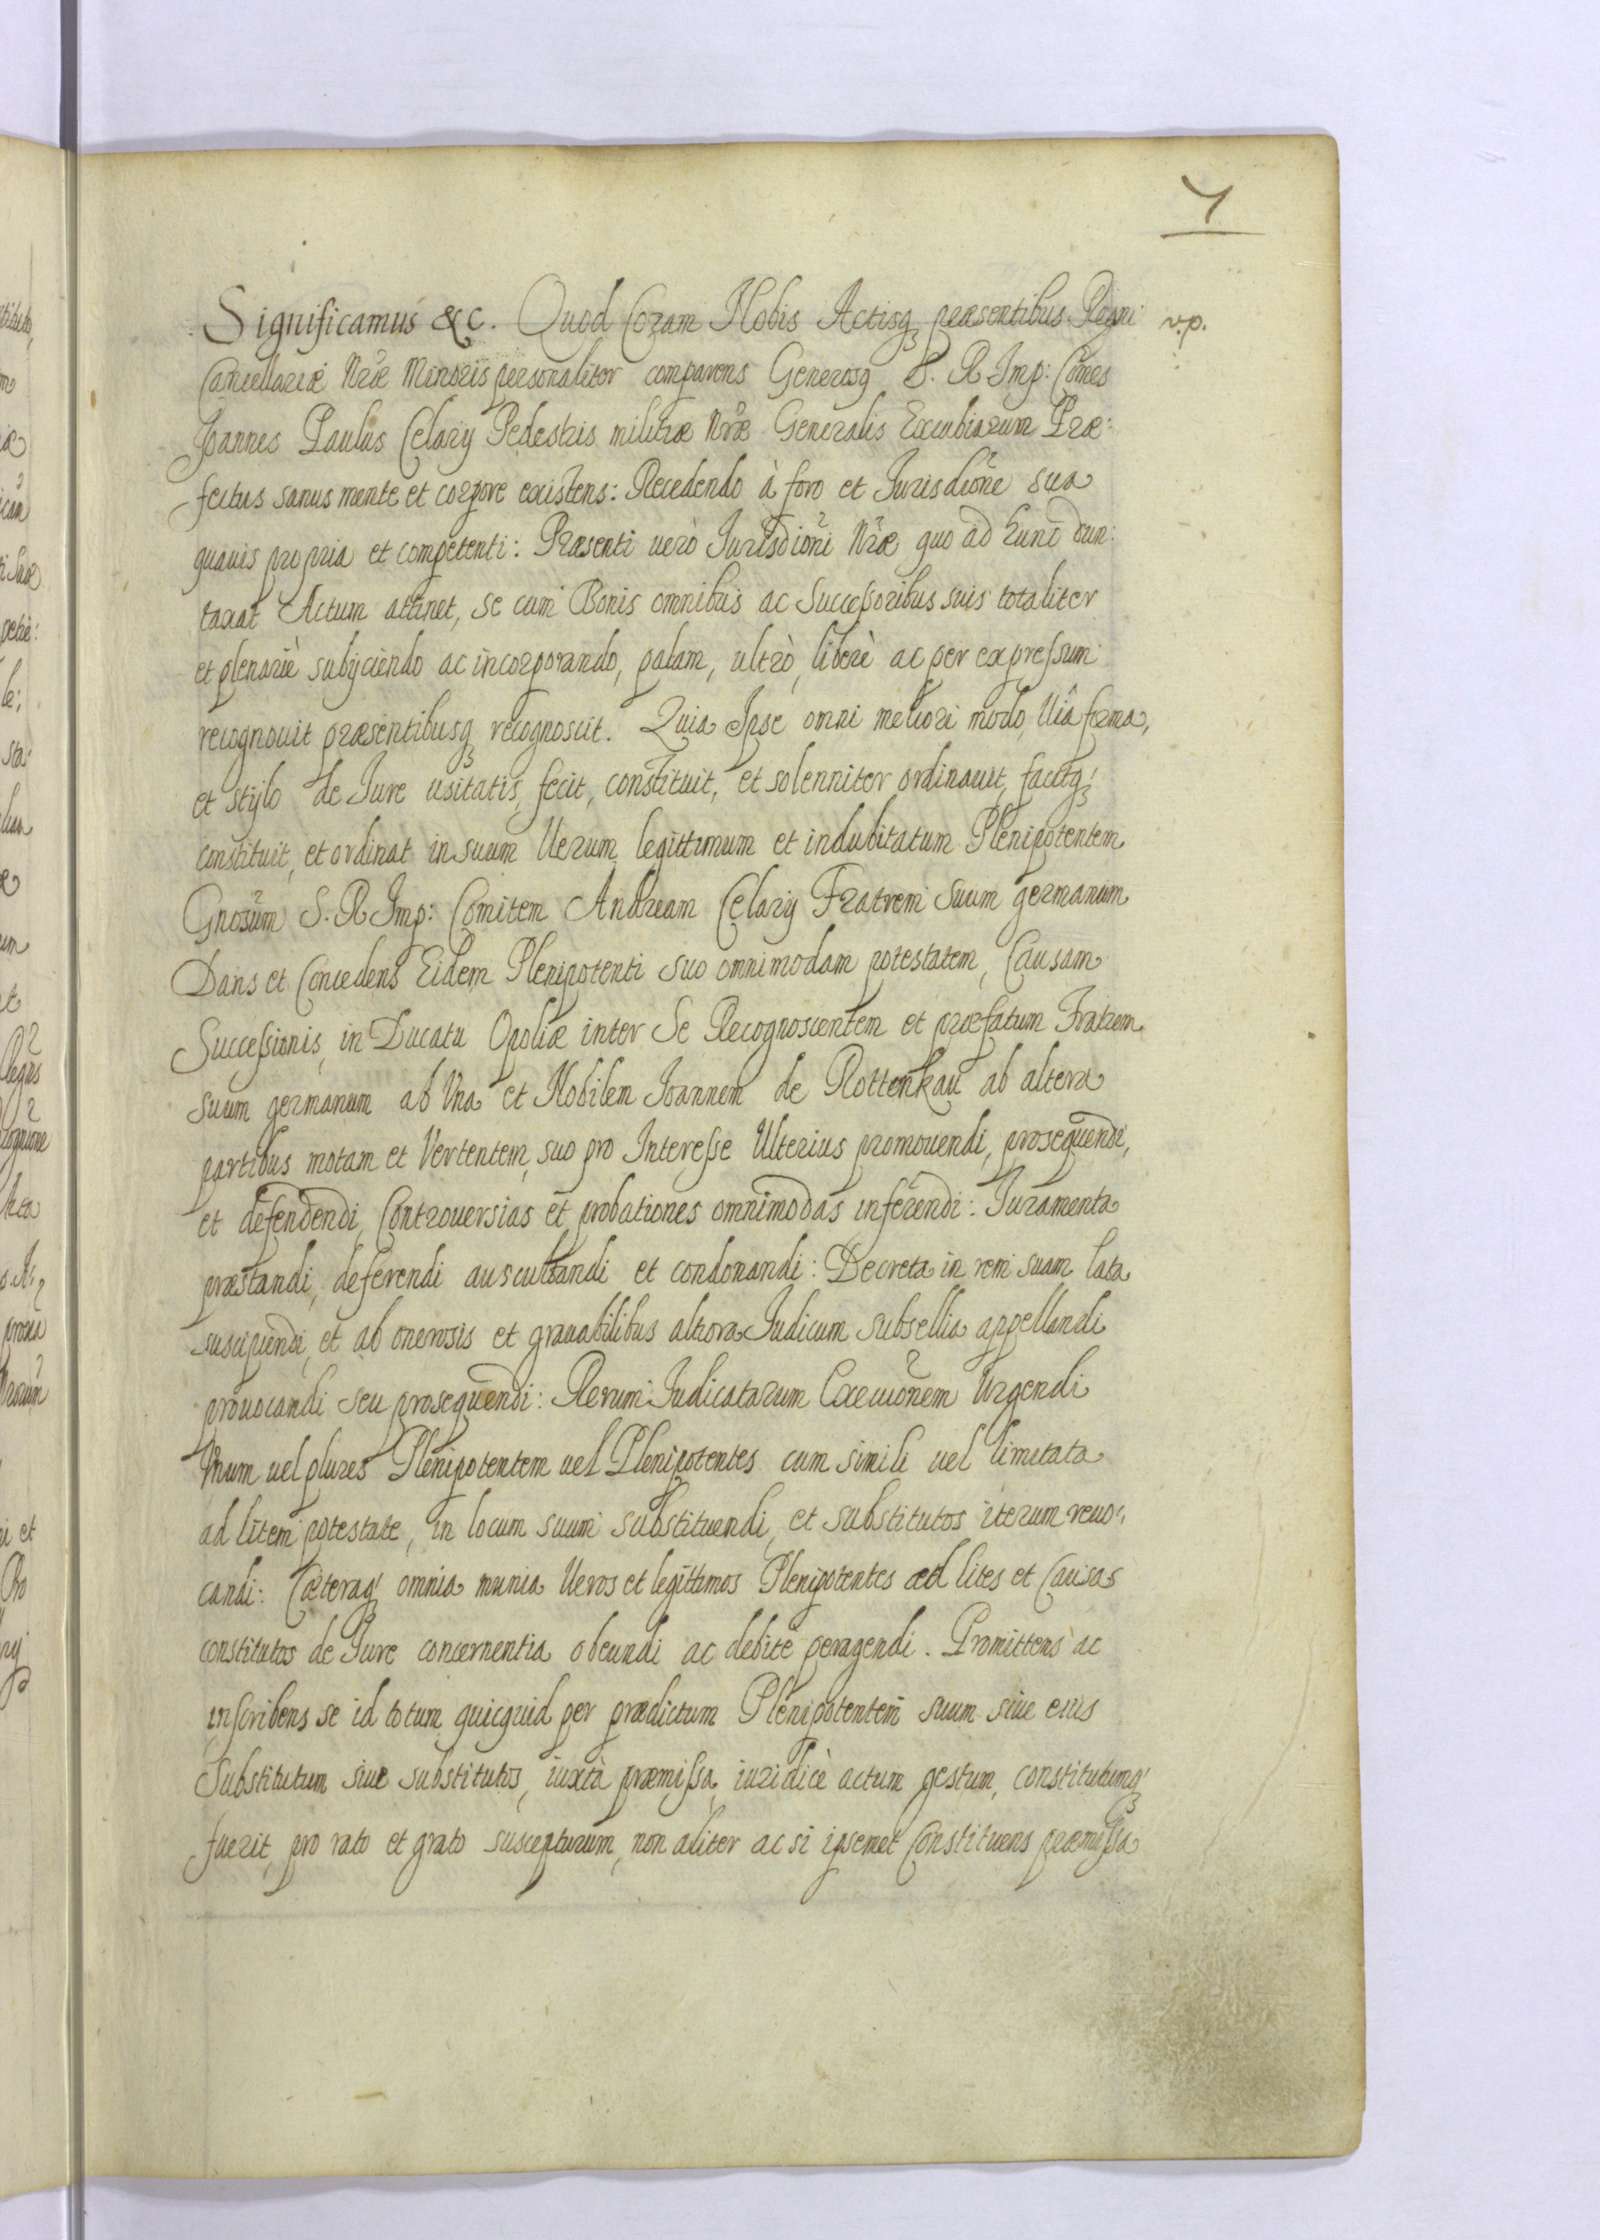 7
Significamus &c. Quod Coram Nobis Actisq3 præsentibus Regni v.p.
Cancellariæ Nr̃æ Minoris personaliter comparens Generosq S. R Imp: Comes
Joannes Paulus Celary Pedestris militiæ Nr̃æ Generalis Excubiarum Præ:
fectus sanus mente et corpore existens: Recedendo à foro et Jurisdiõne sua
quauis propria et competenti: Præsenti uerò Jurisdiõni Nr̃æ quo ad hunc dun:
taxat Actum attinet, se cum Bonis omnibus ac Successoribus suis totaliter
et plenariè subijciendo ac incorporando, palam, ultrò, liberè ac per expressum
recognouit præsentibusq3 recognoscit. Quia Ipse omni meliori modo, Uiâ forma,
et stylo de Jure usitatis, fecit, constituit, et solenniter ordinauit, facitq3
constituit, et ordinat in suum Uerum legittimum et indubitatum Plenipotentem
Gnosũm S. R Imp: Comitem Andream Celary Fratrem suum germanum
Dans et Concedens Eidem Plenipotenti suo omnimodam potestatem, Causam
Successionis, in Ducatu Opoliæ inter Se Recognoscentem et præfatum Fratrem
suum germanum ab Una et Nobilem Joannem de Rottenkau ab altera
partibus motam et Vertentem, suo pro Interesse Ulterius promouendi, prosequendi,
et defendendi, Controuersias et probationes omnimodas inferendi: Juramenta
præstandi, deferendi auscultandi et condonandi: Decreta in rem suam lata
suscipiendi, et ab onerosis et grauabilibus altiora Judicum subsellia appellandi
prouocandi seu prosequendi: Rerum Judicatarum Execuõnem Urgendi
Unum uel plures Plenipotentem uel Plenipotentes cum simili uel limitata
ad litem potestate, in locum suum substituendi, et substitutos iterum reuo:
candi: Cæteraq3 omnia munia Ueros et legittimos Plenipotentes ad lites et Causas
constitutos de Jure concernentia obeundi ac debite peragendi. Promittens ac
inscribens se id totum quicquid per prædictum Plenipotentem suum siue eius
Substitutum siue substitutos, iuxtà præmissa, iuridicè actum gestum, constitutumq3
fuerit, pro rato et grato suscepturum, non aliter ac si ipsemet Constituens præmissa